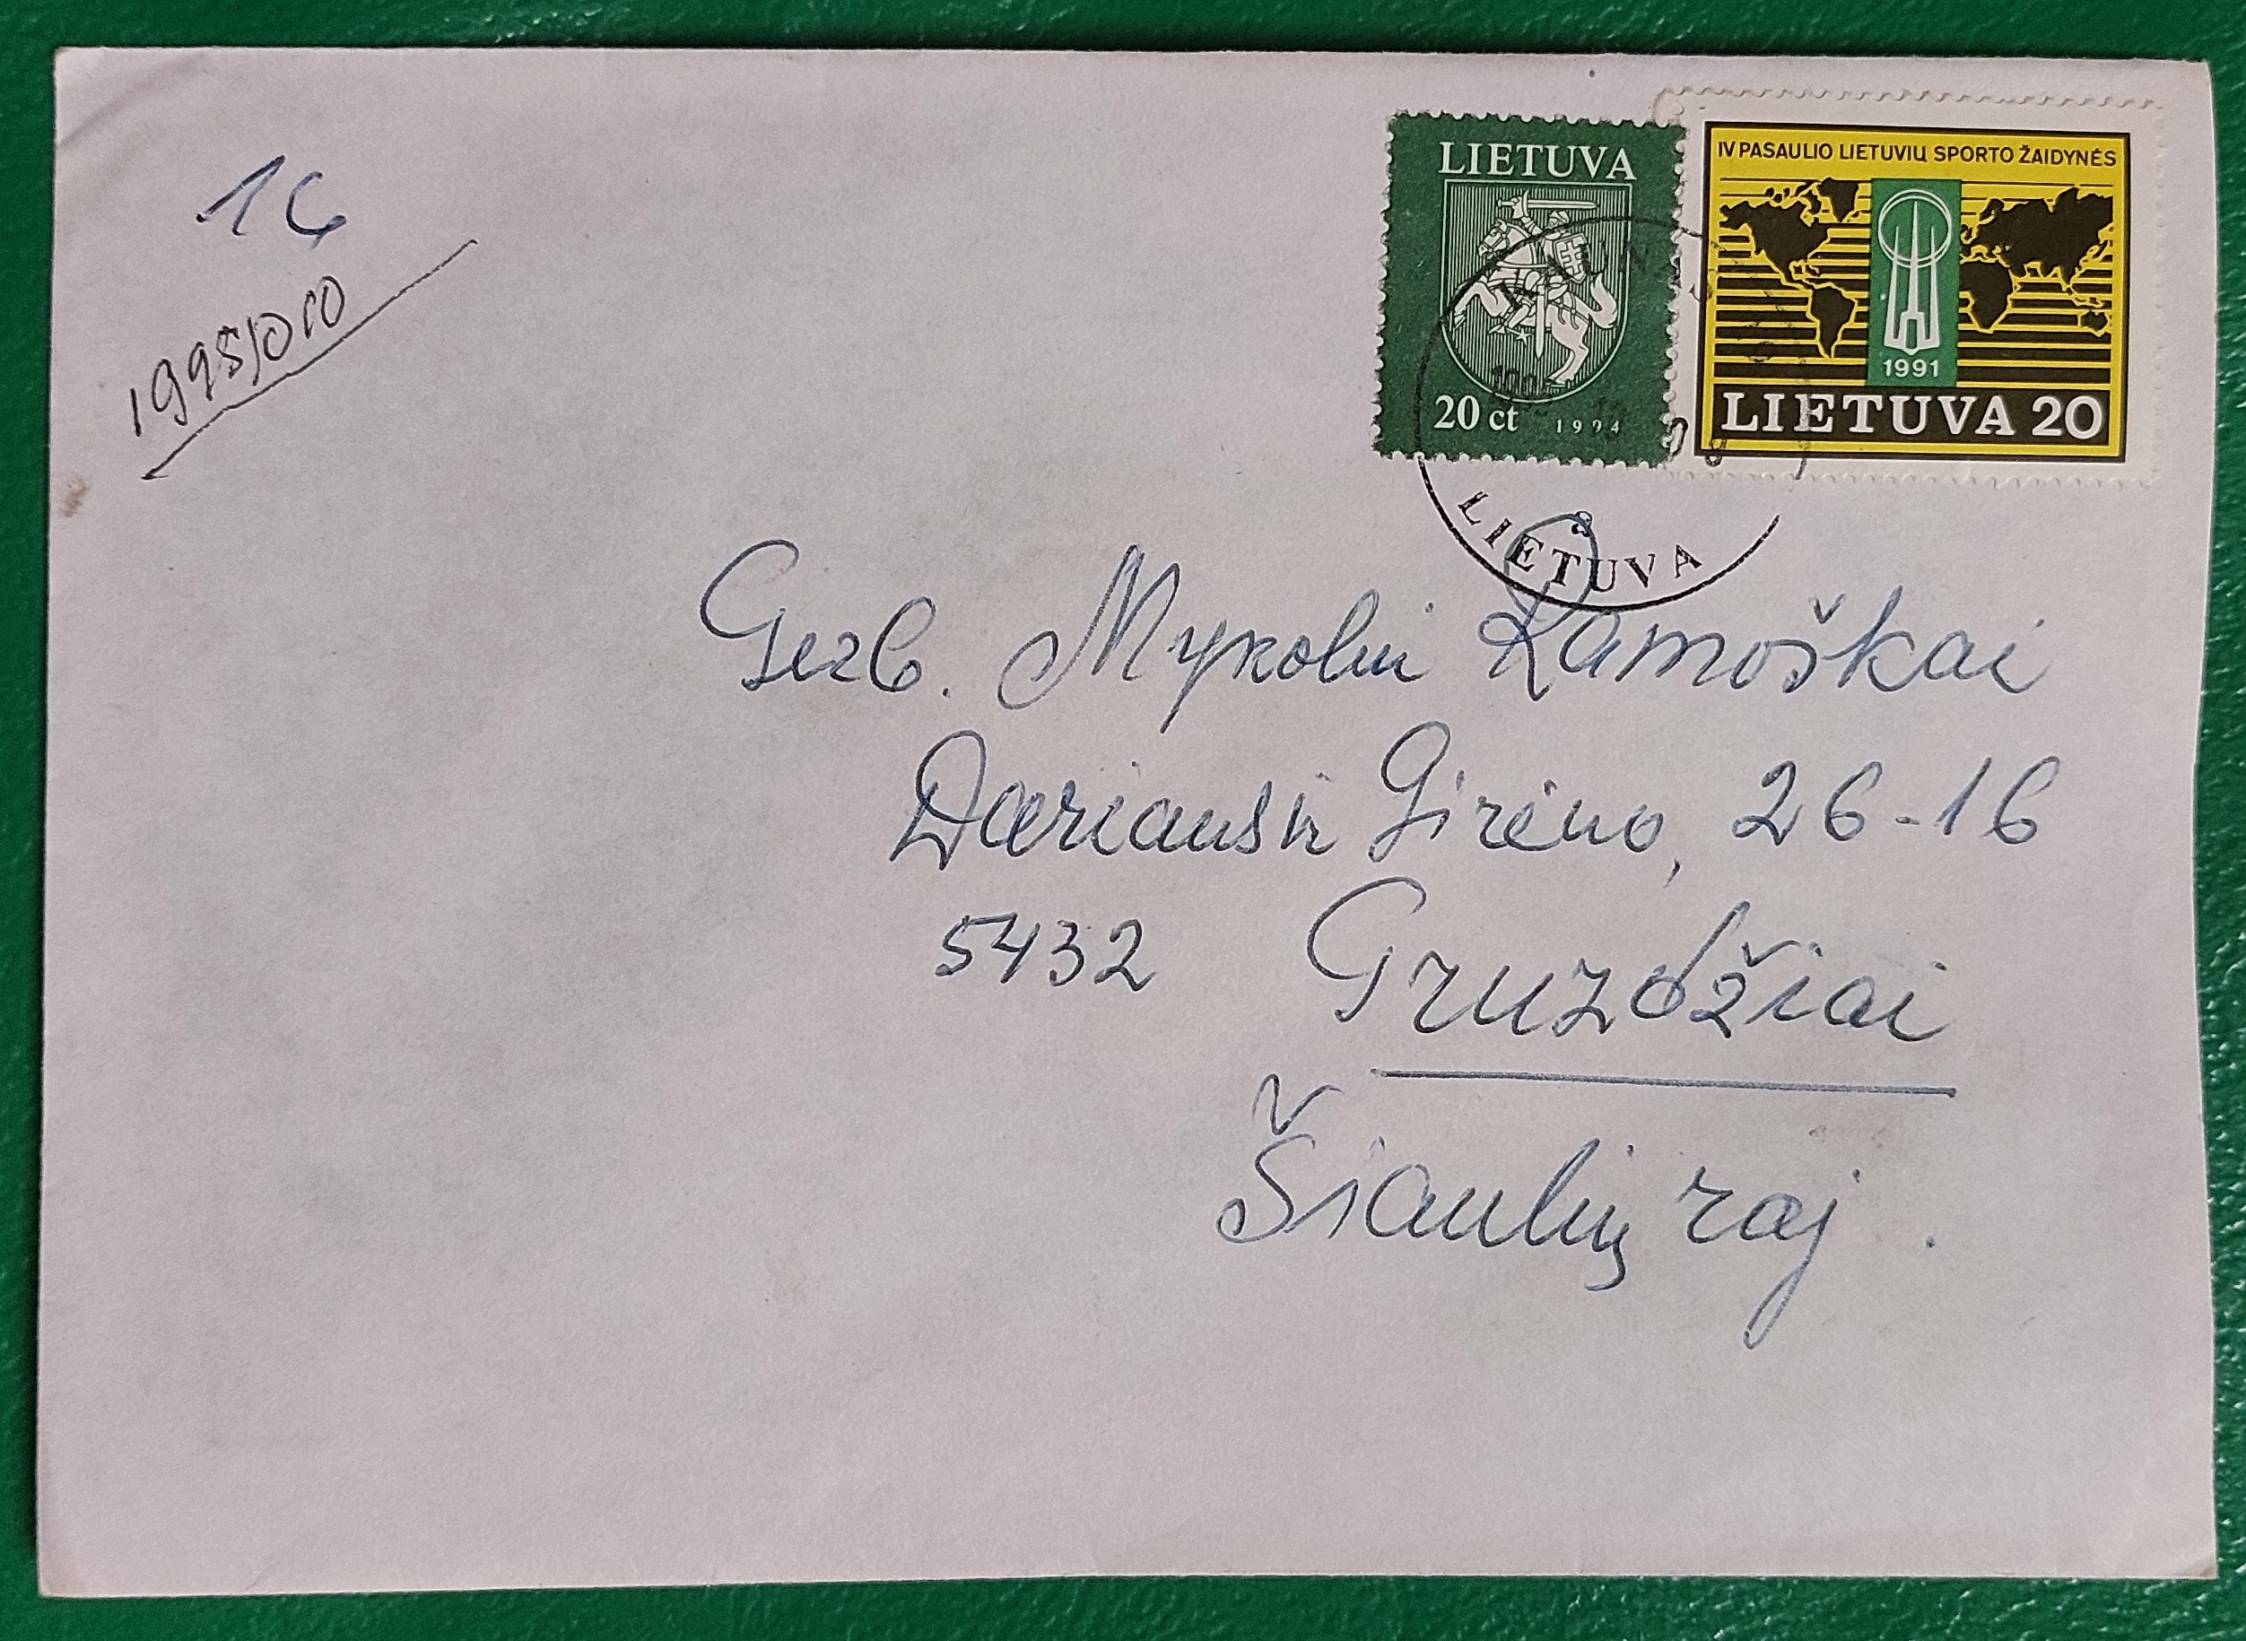 14
19951010
LIETUVA
20 ct 1994
IV PASAULIO LIETUVIŲ SPORTO ŽAIDYNĖS
1991
LIETUVA 20
KAUNAS
LIETUVA
Gerb. Mykolui Ramoškai
Dariaus ir Girėno, 26-16
5432 Gruzdžiai
Šiaulių raj.